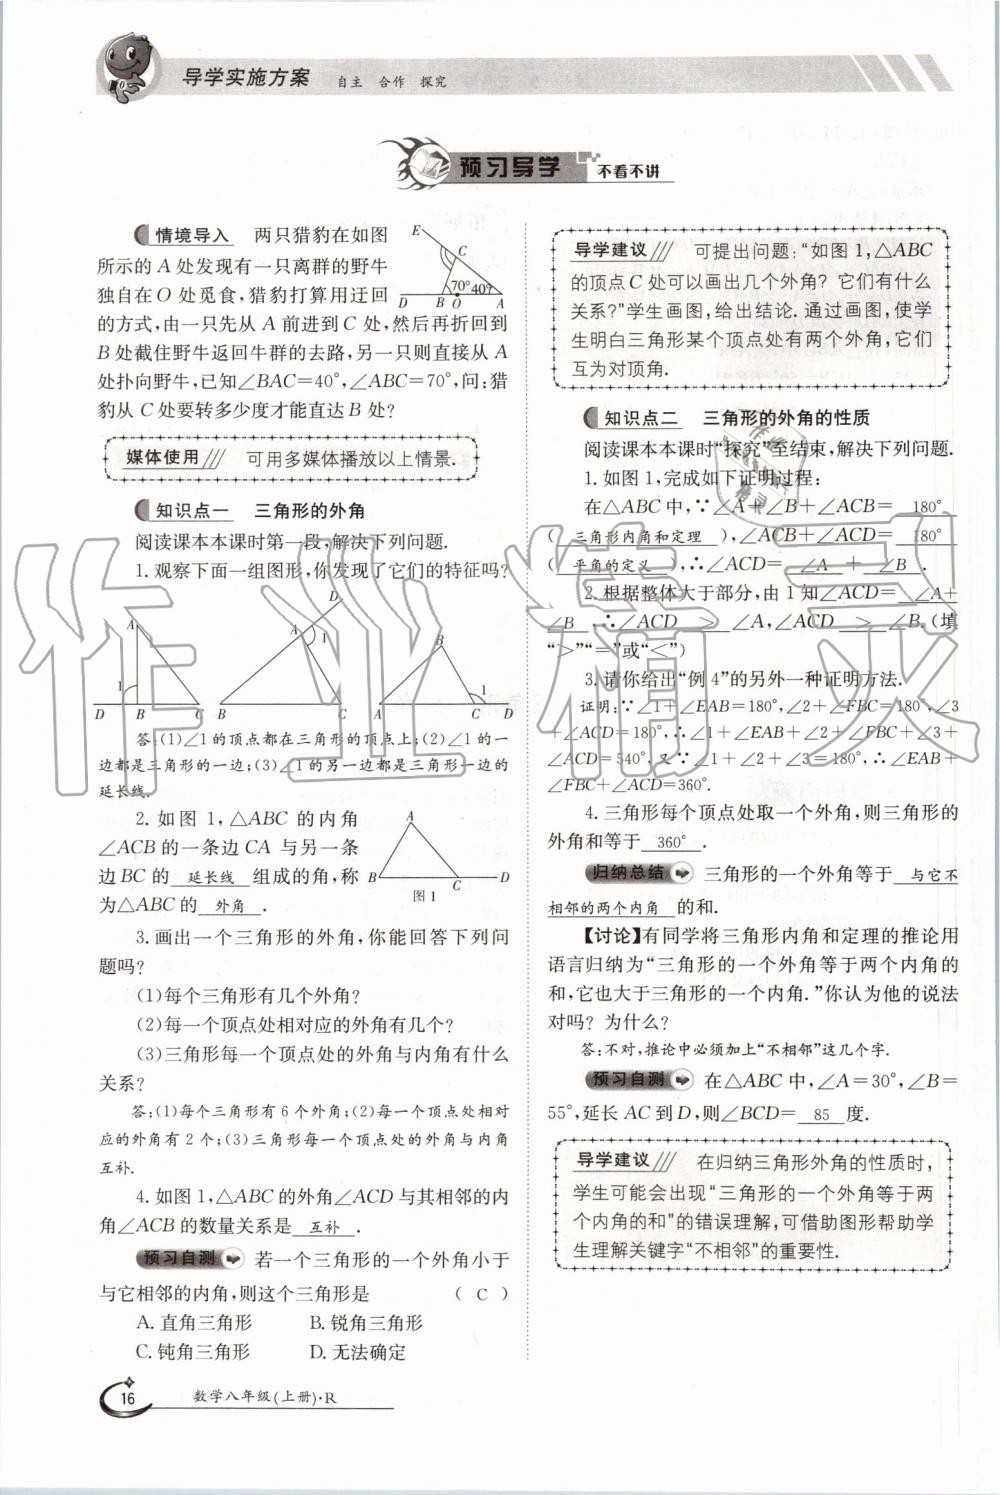 导学实施方案 自主 合作 探究
预习导学 不看不讲
情境导入 两只猎豹在如图
所示的 A 处发现有一只离群的野牛
独自在 O 处觅食,猎豹打算用迂回
的方式,由一只先从 A 前进到 C 处,然后再折回到
B 处截住野牛返回牛群的去路,另一只则直接从 A
处扑向野牛,已知∠BAC=40°,∠ABC=70°,问:猎
豹从 C 处要转多少度才能直达 B 处?
E
C
70° 40°
D B O A
媒体使用 可用多媒体播放以上情景.
知识点一 三角形的外角
阅读课本本课时第一段,解决下列问题.
1. 观察下面一组图形,你发现了它们的特征吗?
A 1 D B C
D A 1 B C
B 1 A C D
答:(1)∠1的顶点都在三角形的顶点上;(2)∠1的一
边都是三角形的一边;(3)∠1的另一边都是三角形一边的
延长线.
2. 如图 1,△ABC 的内角
∠ACB 的一条边 CA 与另一条
边 BC 的 延长线 组成的角,称
为△ABC 的 外角 .
A
B C D
图 1
3. 画出一个三角形的外角,你能回答下列问
题吗?
(1)每个三角形有几个外角?
(2)每一个顶点处相对应的外角有几个?
(3)三角形每一个顶点处的外角与内角有什么
关系?
答:(1)每个三角形有 6 个外角;(2)每一个顶点处相对
应的外角有 2 个;(3)三角形每一个顶点处的外角与内角
互补.
4. 如图 1,△ABC 的外角∠ACD 与其相邻的内
角∠ACB 的数量关系是 互补 .
预习自测 若一个三角形的一个外角小于
与它相邻的内角,则这个三角形是 ( C )
A. 直角三角形 B. 锐角三角形
C. 钝角三角形 D. 无法确定
导学建议 可提出问题:“如图 1,△ABC
的顶点 C 处可以画出几个外角? 它们有什么
关系?”学生画图,给出结论. 通过画图,使学
生明白三角形某个顶点处有两个外角,它们
互为对顶角.
知识点二 三角形的外角的性质
阅读课本本课时“探究”至结束,解决下列问题.
1. 如图 1,完成如下证明过程:
在△ABC 中,∵∠A+∠B+∠ACB= 180°
( 三角形内角和定理 ),∠ACB+∠ACD= 180°
( 平角的定义 ),∴∠ACD= ∠A + ∠B .
2. 根据整体大于部分,由 1 知∠ACD= ∠A+
∠B ,∴∠ACD > ∠A,∠ACD > ∠B. (填
“>”“=”或“<”)
3. 请你给出“例 4”的另外一种证明方法.
证明:∵∠1+∠EAB=180°,∠2+∠FBC=180°,∠3
+∠ACD=180°,∴∠1+∠EAB+∠2+∠FBC+∠3+
∠ACD=540°,又∵∠1+∠2+∠3=180°,∴∠EAB+
∠FBC+∠ACD=360°.
4. 三角形每个顶点处取一个外角,则三角形的
外角和等于 360° .
归纳总结 三角形的一个外角等于 与它不
相邻的两个内角 的和.
【讨论】有同学将三角形内角和定理的推论用
语言归纳为“三角形的一个外角等于两个内角的
和,它也大于三角形的一个内角.”你认为他的说法
对吗? 为什么?
答:不对,推论中必须加上“不相邻”这几个字.
预习自测 在△ABC 中,∠A=30°,∠B=
55°,延长 AC 到 D,则∠BCD= 85 度.
导学建议 在归纳三角形外角的性质时,
学生可能会出现“三角形的一个外角等于两
个内角的和”的错误理解,可借助图形帮助学
生理解关键字“不相邻”的重要性.
16 数学八年级(上册)·R
作业精灵